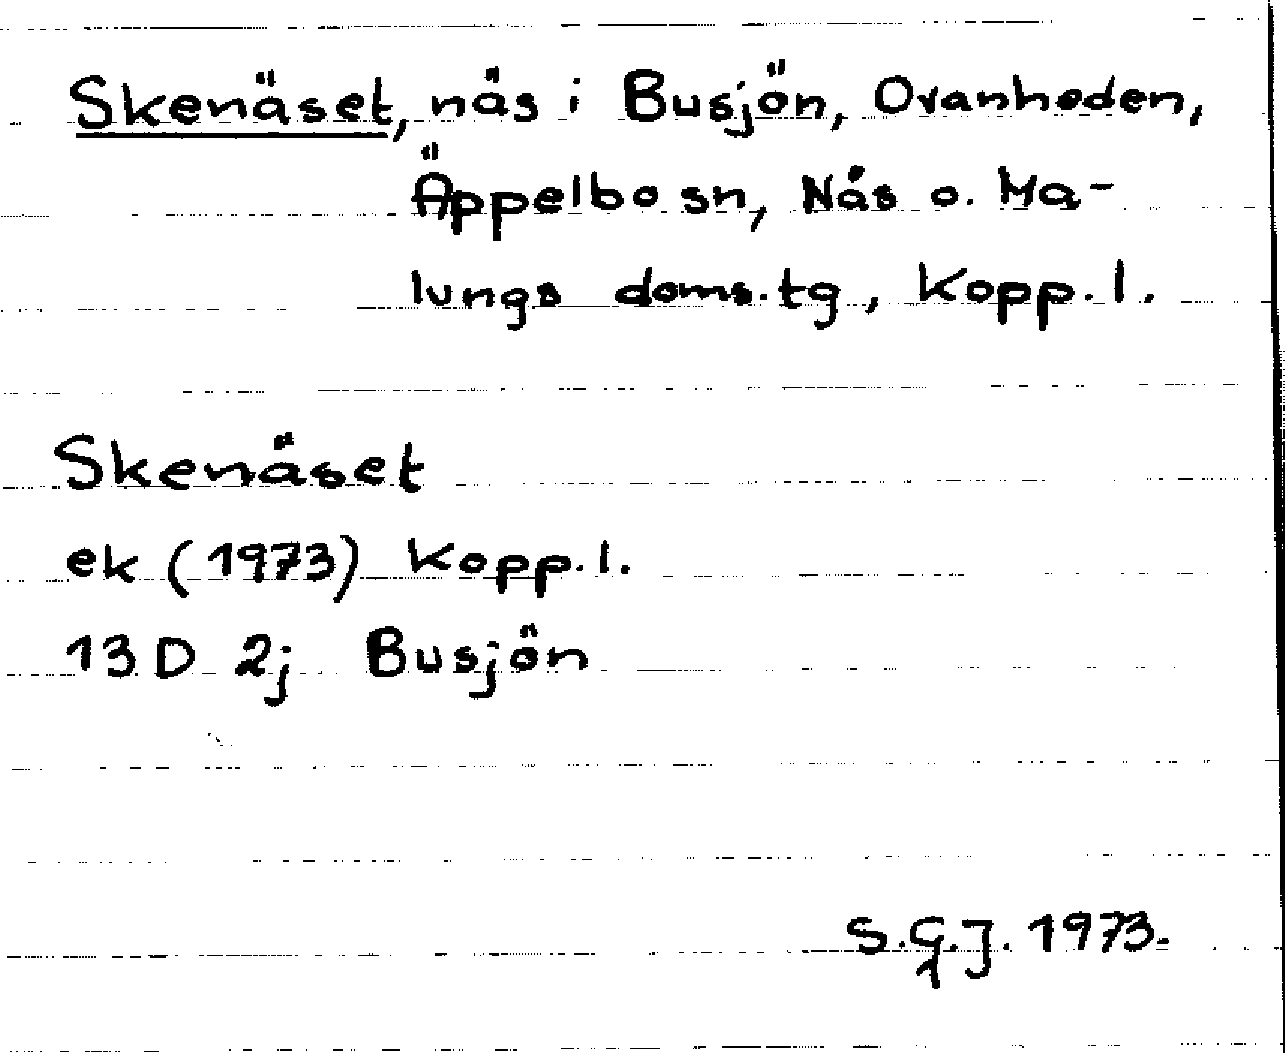 Skenäset, näs i Busjön, Ovanheden,
Äppelbo sn, Nås o. Ma-
lungs doms.tg, Kopp.l.
Skenäset
ek (1973) Kopp.l.
13 D 2j Busjön
S.G.J. 1973.